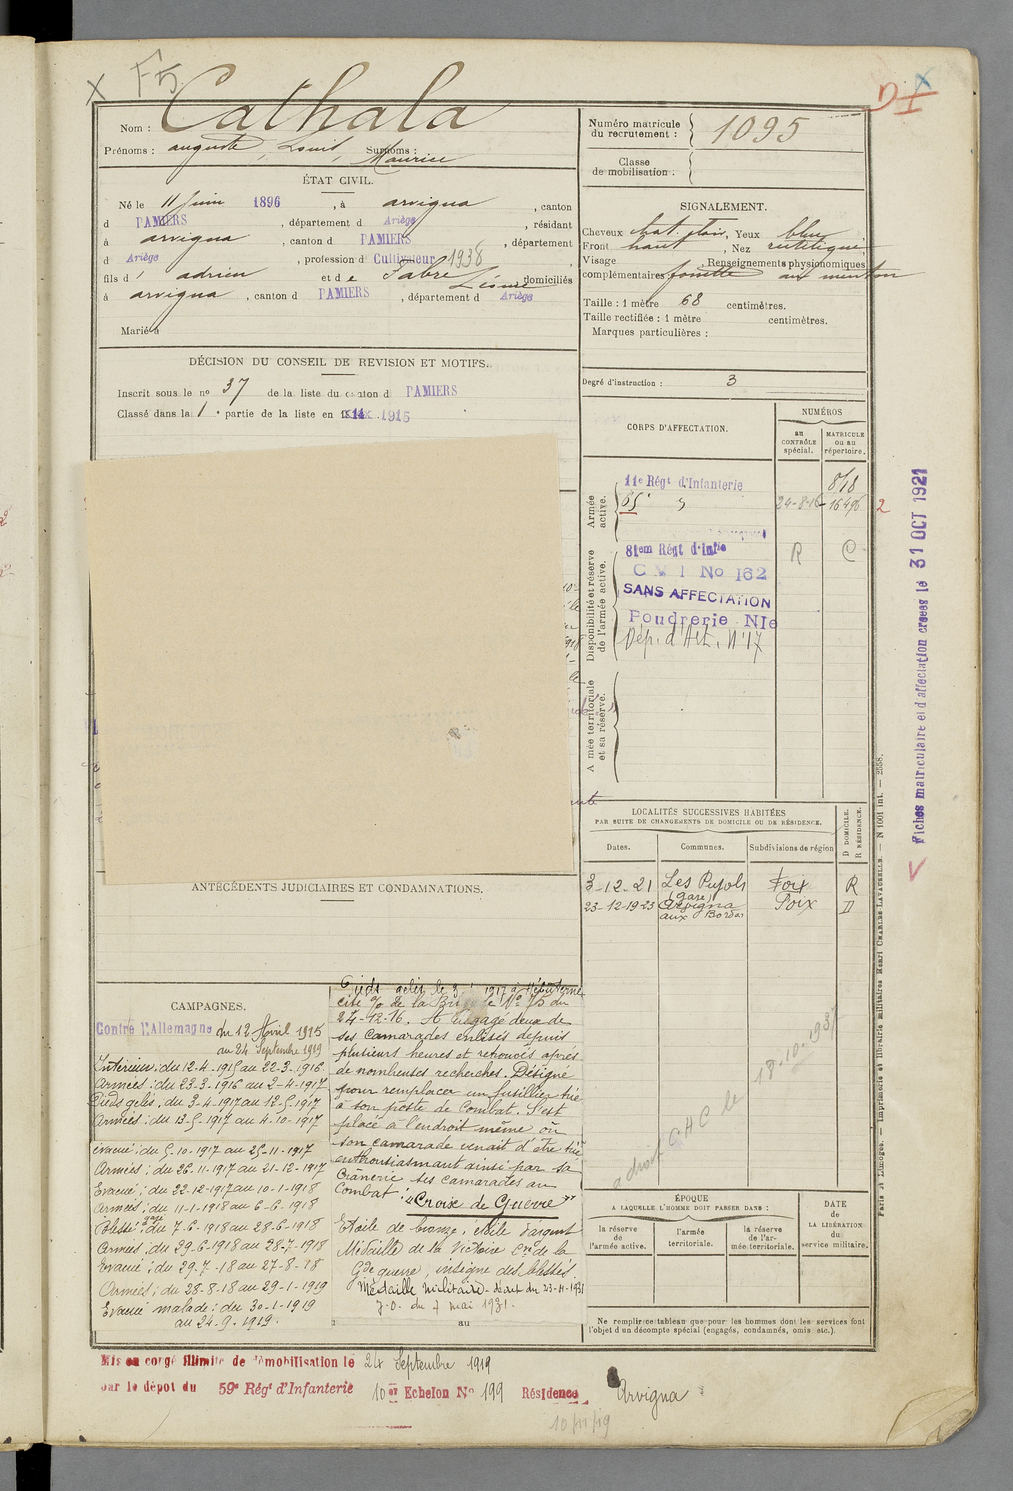 X F5
Nom : Cathala
Prénoms : auguste, Louis, Surnoms :
Maurice
ÉTAT CIVIL.
Né le 11 Juin 1896, à arvigna, canton
d PAMIERS, département d Ariège, résidant
à arvigna, canton d PAMIERS, département
d Ariège, profession d Cultivateur 1938
fils d' adrien et de Fabre Léonie domiciliés
à arvigna, canton d PAMIERS, département d Ariège
Marié à
DÉCISION DU CONSEIL DE REVISION ET MOTIFS.
Inscrit sous le no 37 de la liste du canton d PAMIERS
Classé dans la 1 e partie de la liste en 1915
ANTÉCÉDENTS JUDICIAIRES ET CONDAMNATIONS.
CAMPAGNES.
Contre l'Allemagne du 12 Avril 1915
au 24 Septembre 1919
Intérieur : du 12-4-1915 au 22-3-1916
Armées : du 23-3-1916 au 2-4-1917
Pieds gelés, du 3-4-1917 au 12-5-1917
Armées : du 13-5-1917 au 4-10-1917
évacué : du 5-10-1917 au 25-11-1917
Armées : du 26-11-1917 au 21-12-1917
Evacué : du 22-12-1917 au 10-1-1918
Armées : du 11-1-1918 au 6-6-1918
Blessé gaz : du 7-6-1918 au 28-6-1918
Armées : du 29-6-1918 au 28-7-1918
Evacué : du 29-7-18 au 27-8-18
Armées : du 28-8-18 au 29-1-1919
Evacué malade : du 30-1-1919
au 24-9-1919
Pieds gelés le 3 1917 à
cité % de la Brigade No 75 du
24-12-16. A dégagé deux de
ses camarades enlisés depuis
plusieurs heures et retrouvés après
de nombreuses recherches. Désigné
pour remplacer un fusillier tué
à son poste de Combat. S'est
placé à l'endroit même où
son camarade venait d'être tué
enthousiasmant ainsi par sa
Crânerie ses camarades au
Combat : "Croix de Guerre"
Etoile de bronze, étoile d'argent
Médaille de la Victoire Cve de la
Gde guerre, insigne des blessés.
Médaille militaire - décret du 23-4-1931
J.O. du 7 mai 1931.
au
Mis en congé illimité de démobilisation le 24 Septembre 1919
par le dépôt du 59e Régt d'Infanterie 10 er Echelon No 199 Résidence Arvigna
10/11/19
Numéro matricule
du recrutement : 1095
Classe
de mobilisation :
SIGNALEMENT.
Cheveux chat. clair, Yeux bleu
Front haut, Nez rectiligne
Visage , Renseignements physionomiques
complémentaires fossette au menton
Taille : 1 mètre 68 centimètres.
Taille rectifiée : 1 mètre centimètres.
Marques particulières :
Degré d'instruction : 3
CORPS D'AFFECTATION.
NUMÉROS
au
CONTRÔLE
spécial.
MATRICULE
ou au
répertoire.
Armée
active.
11e Régt d'Infanterie 818
85e 24-8-16 - 16496 2
Disponibilité et réserve
de l'armée active.
81em Régt d'Infie R C
C M I No 162
SANS AFFECTATION
Poudrerie Nle
Dép. d'Art. N°17
Armée territoriale
et sa réserve.
LOCALITÉS SUCCESSIVES HABITÉES
PAR SUITE DE CHANGEMENTS DE DOMICILE OU DE RÉSIDENCE.
D DOMICILE.
R RÉSIDENCE.
Dates. Communes. Subdivisions de région
3-12-21 Les Pujols Foix R
(gare)
23-12-1923 Arvigna Foix D
aux Bordes
a droit CHC le 13-10-193
ÉPOQUE
A LAQUELLE L'HOMME DOIT PASSER DANS :
la réserve
de
l'armée active.
l'armée
territoriale.
la réserve
de l'ar-
mée territoriale.
DATE
de
LA LIBÉRATION
du
service militaire.
Ne remplir ce tableau que pour les hommes dont les services font
l'objet d'un décompte spécial (engagés, condamnés, omis etc.).
Paris et Limoges. — Imprimerie et librairie militaires Henri CHARLES-LAVAUZELLE. — N 1001 int. — 2558.
Fiches matriculaire et d'affectation créées le 31 OCT 1921